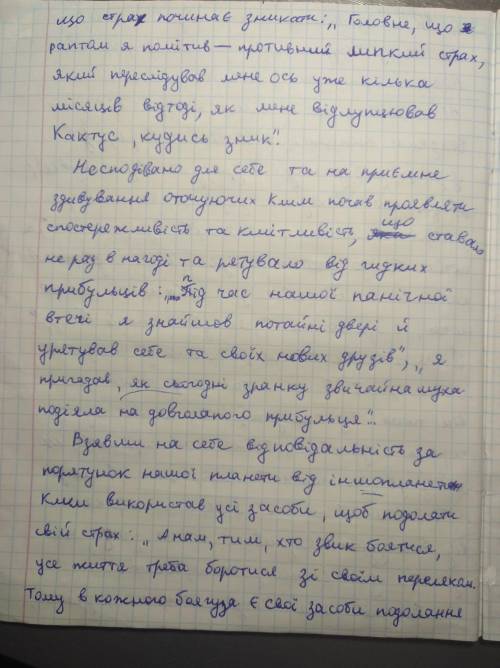 що страх починає зникати: „Головне, що
раптом я помітив — противний липкий страх,
який переслідував мене ось уже кілька
місяців відтоді, як мене відлупцював
Кактус, кудись зник".
Несподівано для себе та на приємне
здивування оточуючих Клим почав проявляти
спостережливість та кмітливість, що ставало
не раз в нагоді та рятувало від гидких
прибульців: „під час нашої панічної
втечі я знайшов потайні двері й
урятував себе та своїх нових друзів", „я
пригадав, як сьогодні зранку звичайна муха
подіяла на довголапого прибульця".
Взявши на себе відповідальність за
порятунок нашої планети від іншопланетян
Клим використав усі засоби, щоб подолати
свій страх: „А нам, тим, хто звик боятися,
усе життя треба боротися зі своїм переляком.
Тому в кожного боягуза є свої засоби подолання